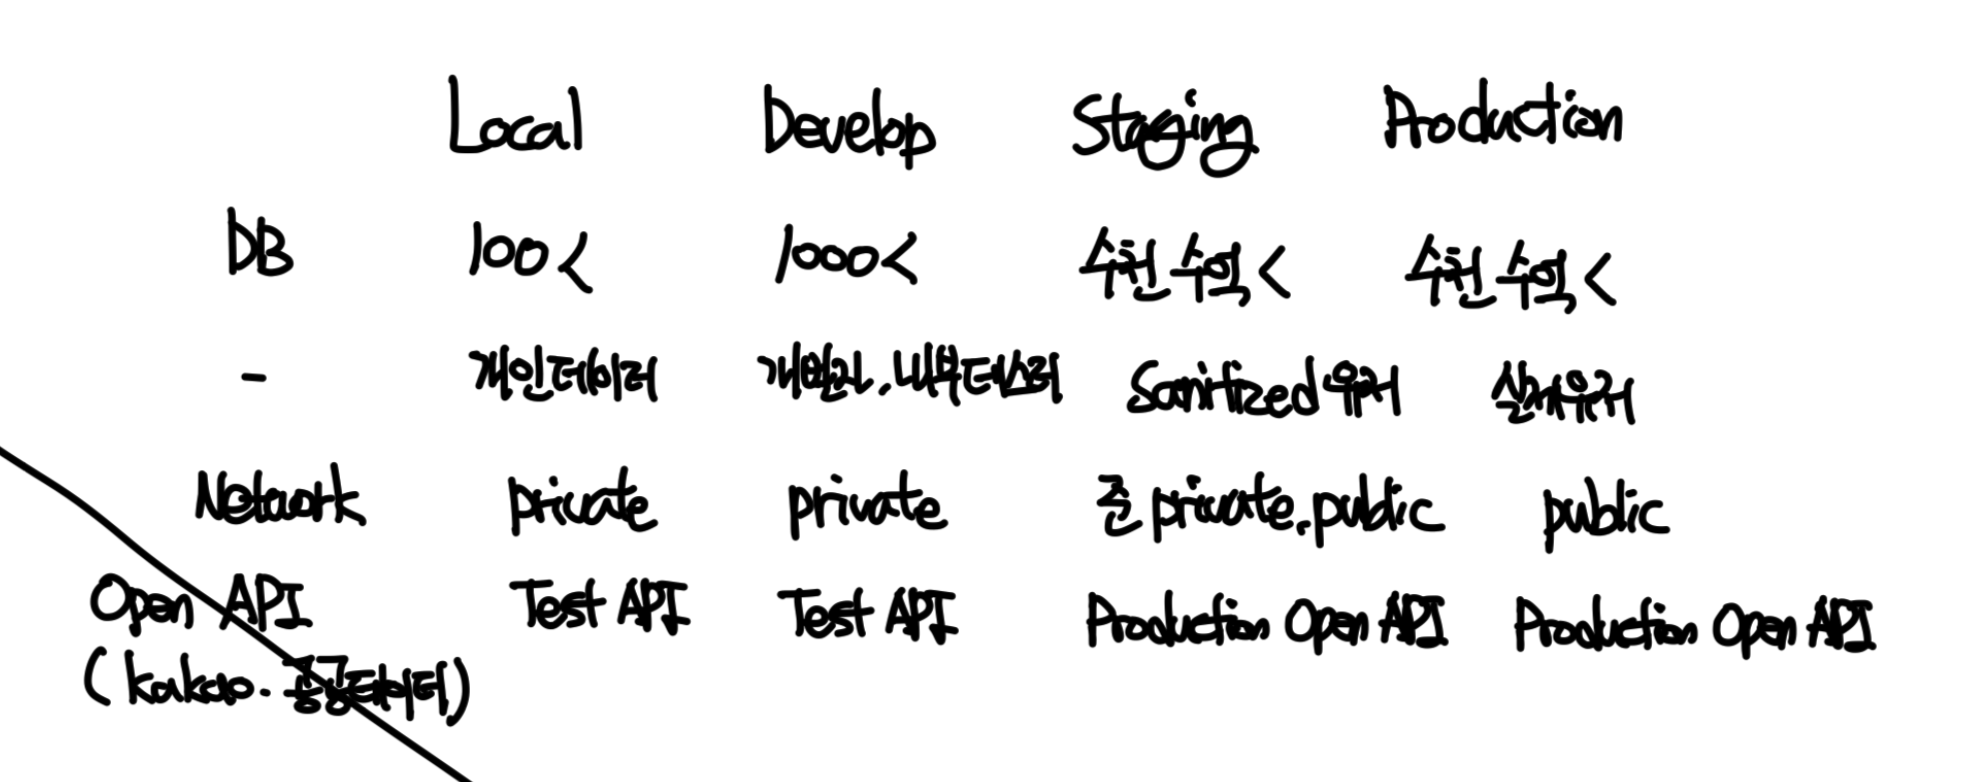 Local Develop Staging Production
DB 100< 1000< 수천 수억< 수천 수억<
- 개인데이터 개발자, 내부테스터 Sanitized 유저 실제유저
Network private private 준 private, public public
Open API Test API Test API Production Open API Production Open API
(kakao. 공공데이터)